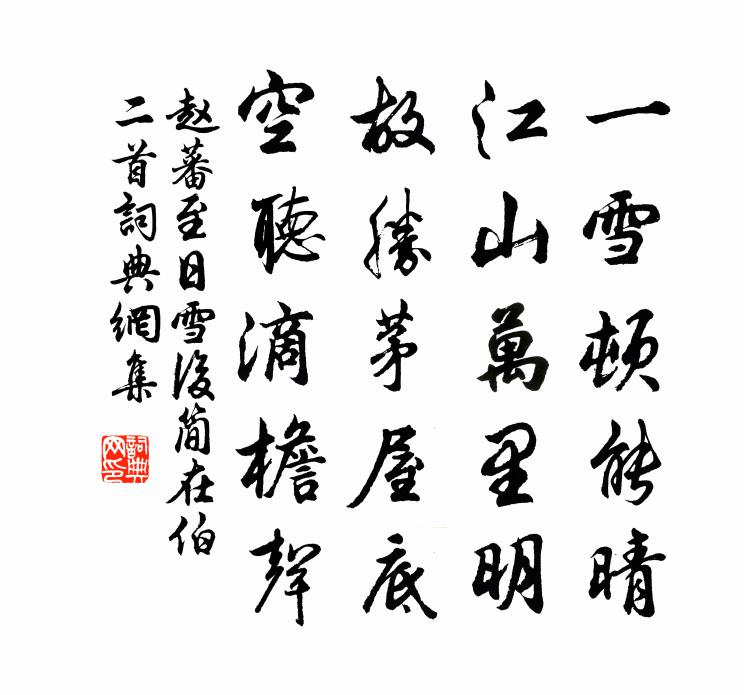 一雪頓能晴
江山萬里明
故勝茅屋底
空聽滴檐聲
赵蕃至日雪後簡在伯
二首詞典網集
詞典網印